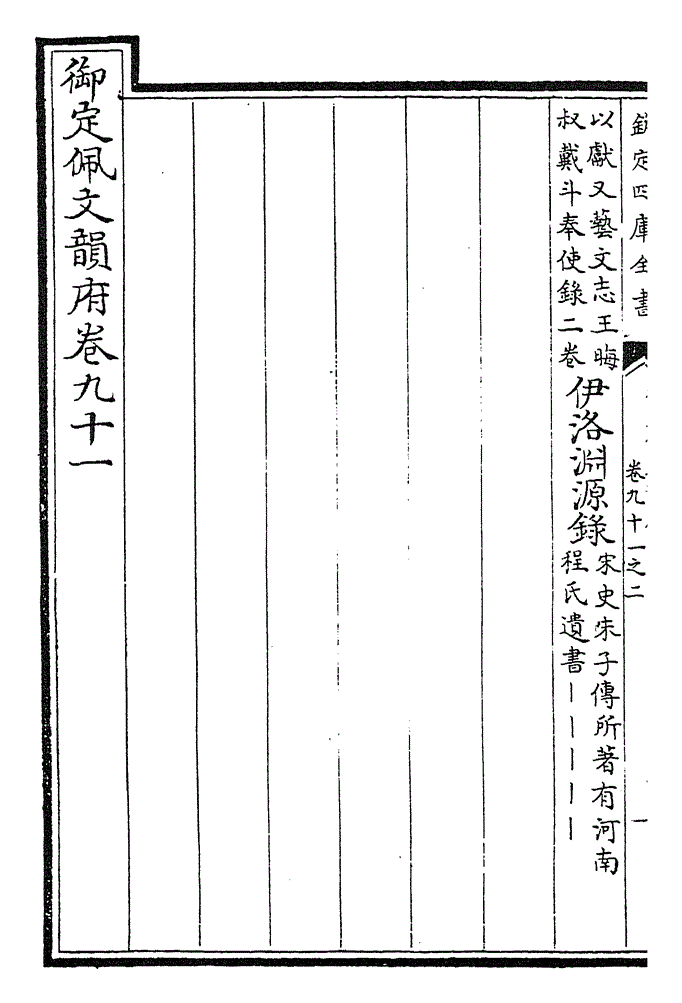 欽定四庫全書
卷九十一之二
以獻又藝文志王晦
叔戴斗奉使錄二卷
伊洛淵源錄
宋史朱子傳所著有河南
程氏遺書｜｜｜｜｜
御定佩文韻府卷九十一